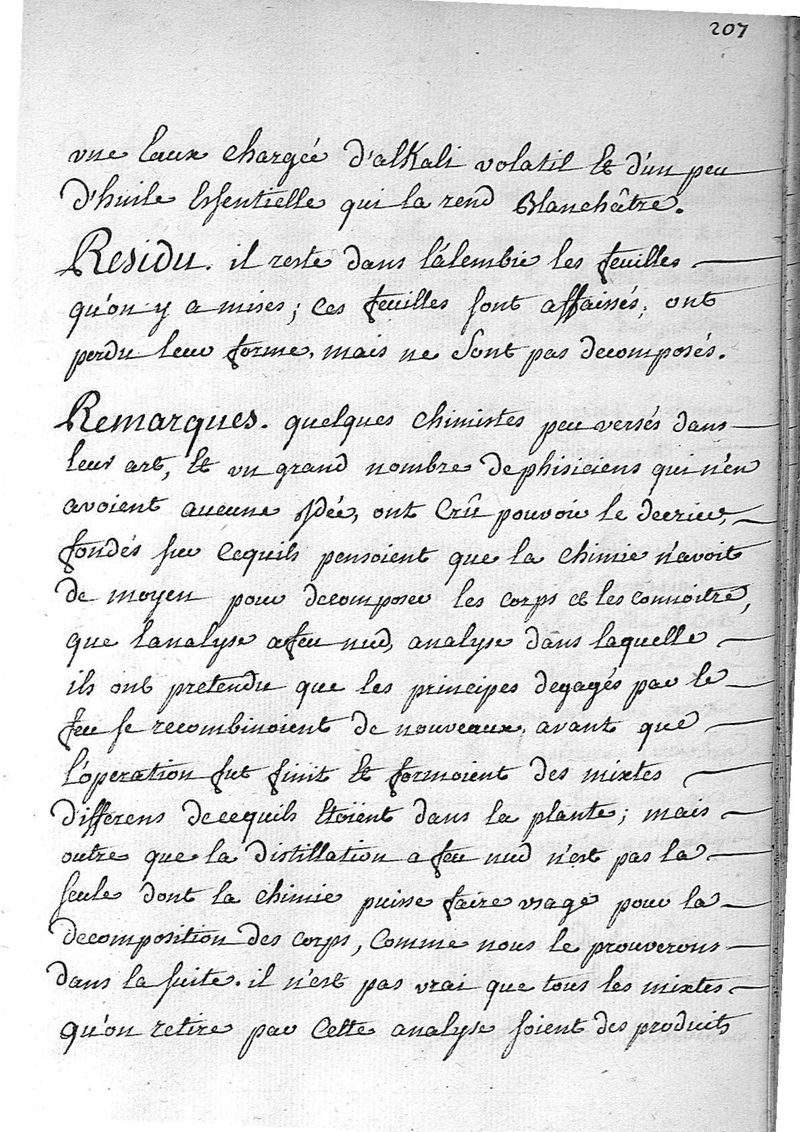 207
vne Eaux chargée d'alKali volatil Et d'un peu
d'huile Essentielle qui la rend Blanchâtre.
Residu. il reste dans l'alembic les feuilles
qu'on y a mises; ces feuilles sont affaissés, ont
perdu leur forme, mais ne sont pas decomposés.
Remarques. quelques chimistes peu versés dans
leur art, Et vn grand nombre de phisiciens qui n'en
avoient aucune Idée, ont Crû pouvoir le decrier,
fondés sur cequils pensoient que la chimie n'avoit
de moyen pour decomposer les corps et les connoitre,
que l'analyse a feu nud, analyse dans laquelle
ils ont pretendu que les principes degagés par le
feu se recombinoient de nouveaux, avant que
l'operation fut finit Et formoient des mixtes
differens de cequils Etoient dans la plante; mais
outre que la distillation a feu nud n'est pas la
seule dont la chimie puisse faire vsage pour la
decomposition des corps, comme nous le prouverons
dans la suite. il n'est pas vrai que tous les mixtes
qu'on retire par Cette analyse soient des produits